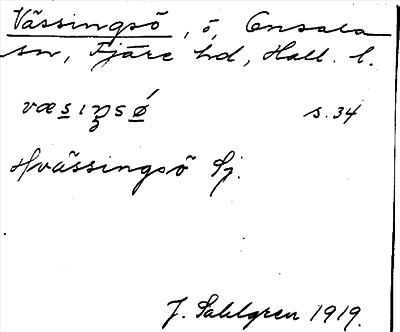 Vässingsö, ö, Onsala
sn, Fjäre hd, Hall. l.
væsıŋsǿ s. 34
Hvässingsö Gj.
J. Sahlgren 1919.